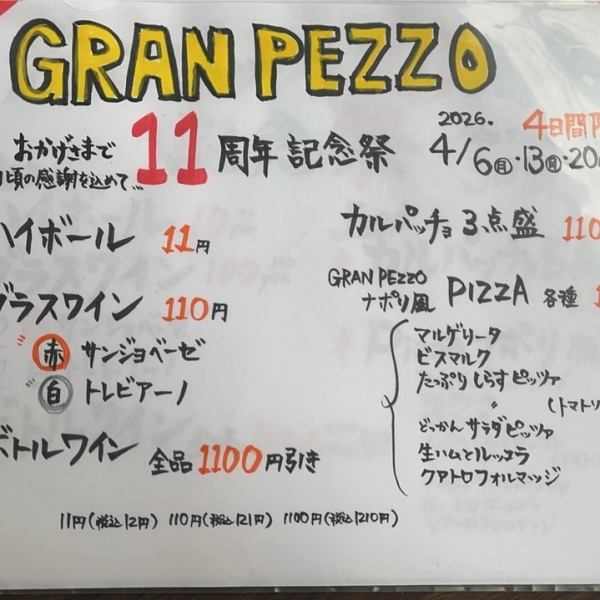 GRAN PEZZO
おかげさまで
頃の感謝を込めて…
11周年 記念祭
2026.
4日間
4/6(月)・13(月)・20
ハイボール 11円
グラスワイン 110円
赤 サンジョベーゼ
白 トレビアーノ
ボトルワイン 全品1100円引き
カルパッチョ 3点盛 110
GRAN PEZZO
ナポリ風 PIZZA 各種
マルゲリータ
ビスマルク
たっぷり しらすピッツァ
〃 (トマトソ
どっかん サラダピッツァ
生ハムとルッコラ
クアトロフォルマッジ
11円(税込12円) 110円(税込121円) 1100円(税込1210円)